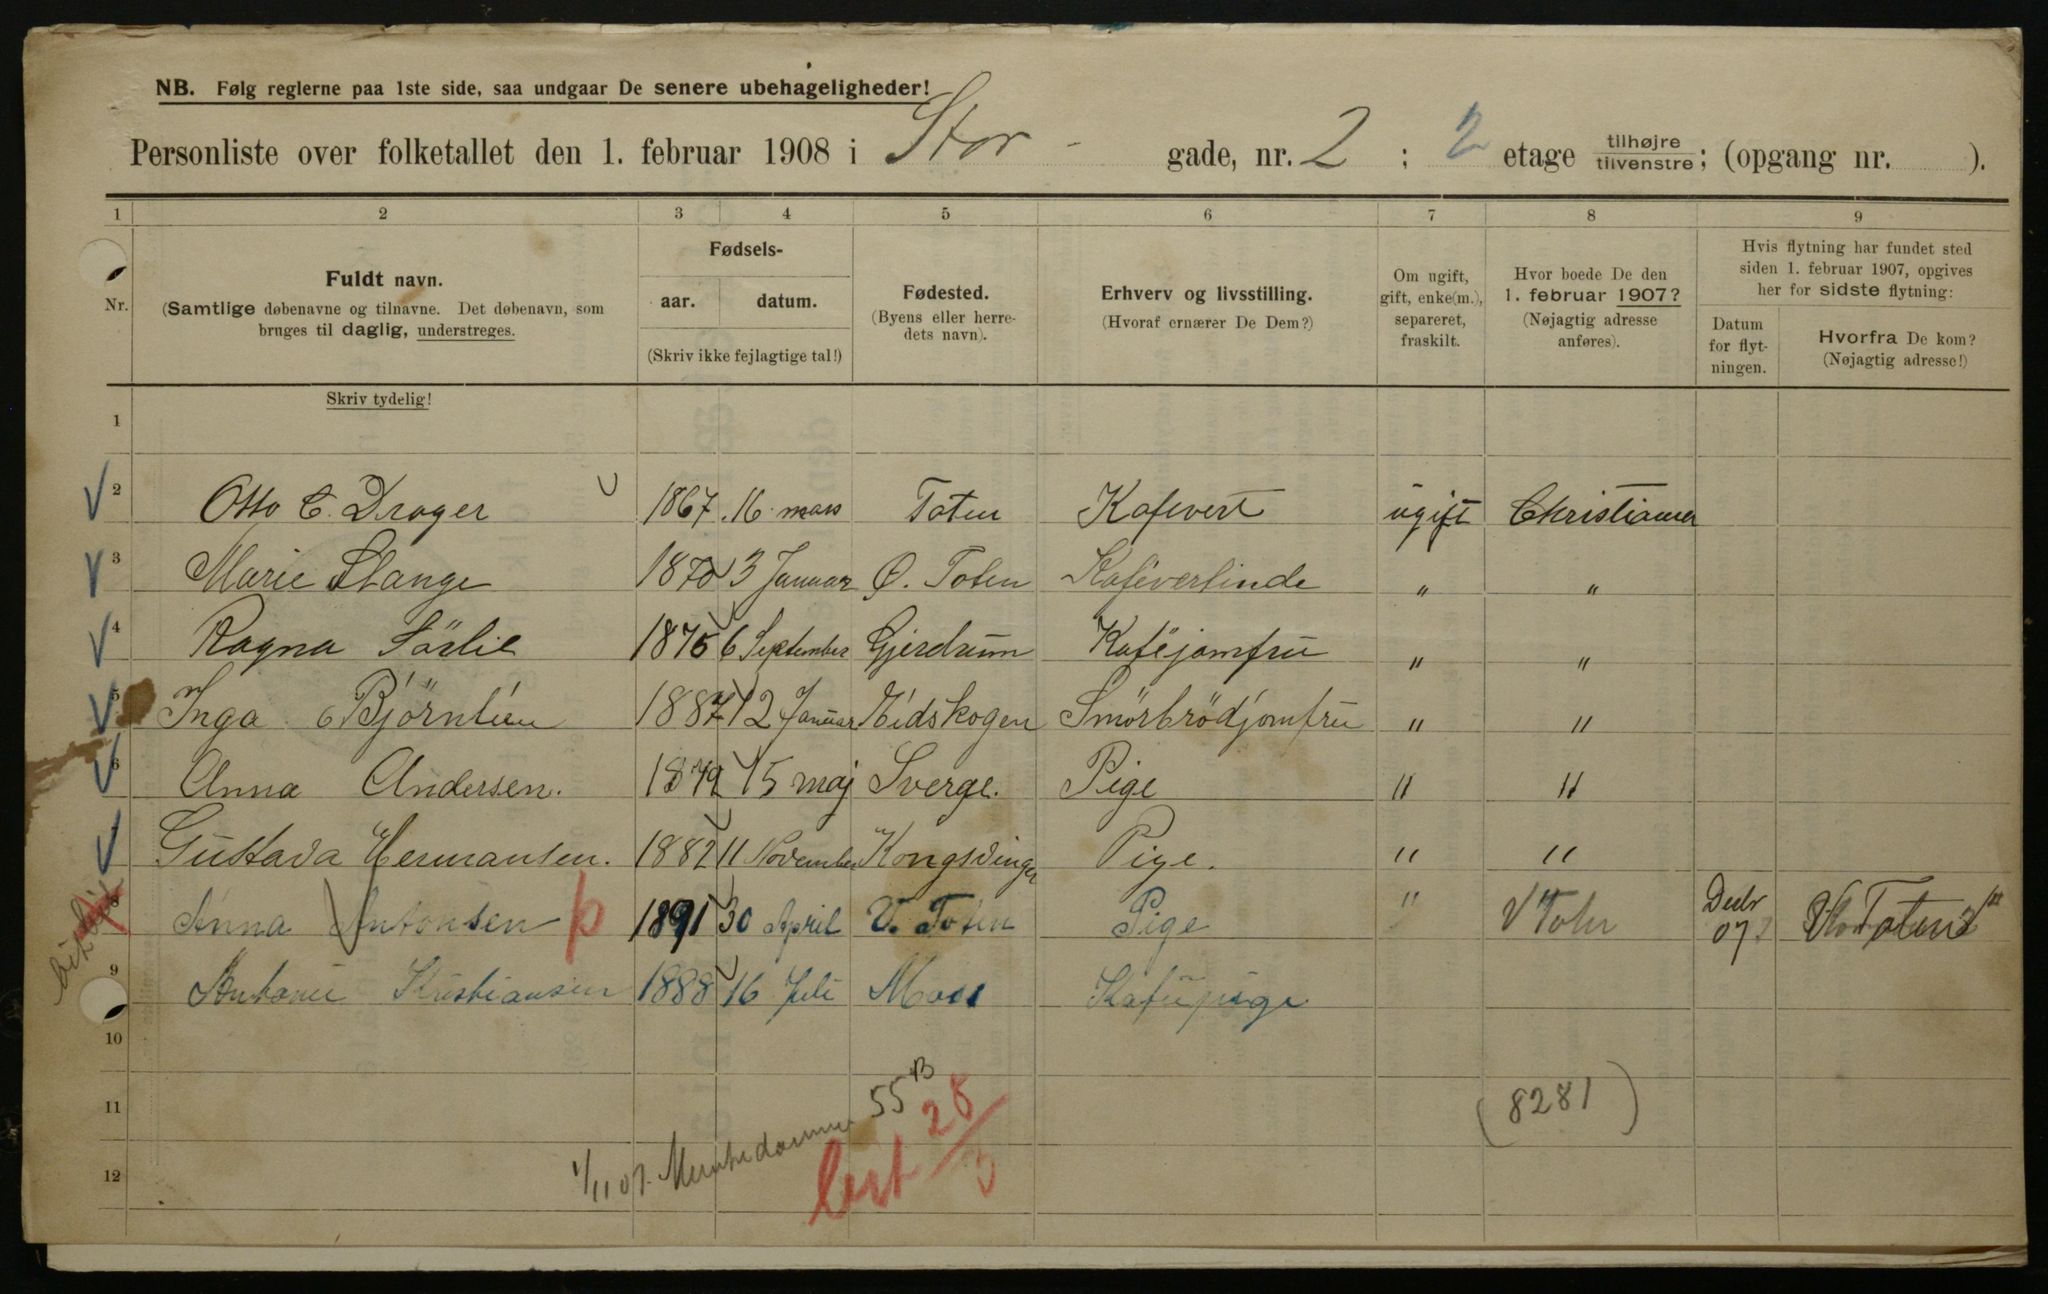 NB. Følg reglerne paa 1ste side, saa undgaar De senere ubehageligheder!
Personliste over folketallet den 1. februar 1908 i Stor - gade, nr. 2 ; 2 etage tilhøjre tilvenstre ; (opgang nr. ).
1 2 3 4 5 6 7 8 9
Nr.
Fuldt navn.
(Samtlige døbenavne og tilnavne. Det døbenavn, som
bruges til daglig, understreges.
Skriv tydelig!
Fødsels-
aar. datum.
(Skriv ikke fejlagtige tal!)
Fødested.
(Byens eller herre-
dets navn).
Erhverv og livsstilling.
(Hvoraf ernærer De Dem?)
Om ugift,
gift, enke(m.),
separeret,
fraskilt.
Hvor boede De den
1. februar 1907?
(Nøjagtig adresse
anføres).
Hvis flytning har fundet sted
siden 1. februar 1907, opgives
her for sidste flytning:
Datum
for flyt-
ningen.
Hvorfra De kom?
(Nøjagtig adresse!)
1
2 Otto C. Drager 1867 16 mars Toten Kafevert ugift Christiania
3 Marie Stange 1870 3 Januar Ø. Toten Kafévertinde " "
4 Ragna Sörlie 1875 6 September Gjerdrum Kaféjomfru " "
5 Inga Björnlien 1887 12 Januar Eidskogen Smörbrödjomfru " "
6 Anna Andersen. 1879 15 maj Sverge. Pige " "
7 Gustava Hermansen. 1882 11 November Kongsvinger Pige. " "
8 Anna Antonsen 1891 30 April V. Toten Pige " V Totn Decbr 07 Toten
9 Kristiansen 1888 16 Juli Moss Kafépige
10
11
12
1/11 07. 55 B
28/3
(8281)